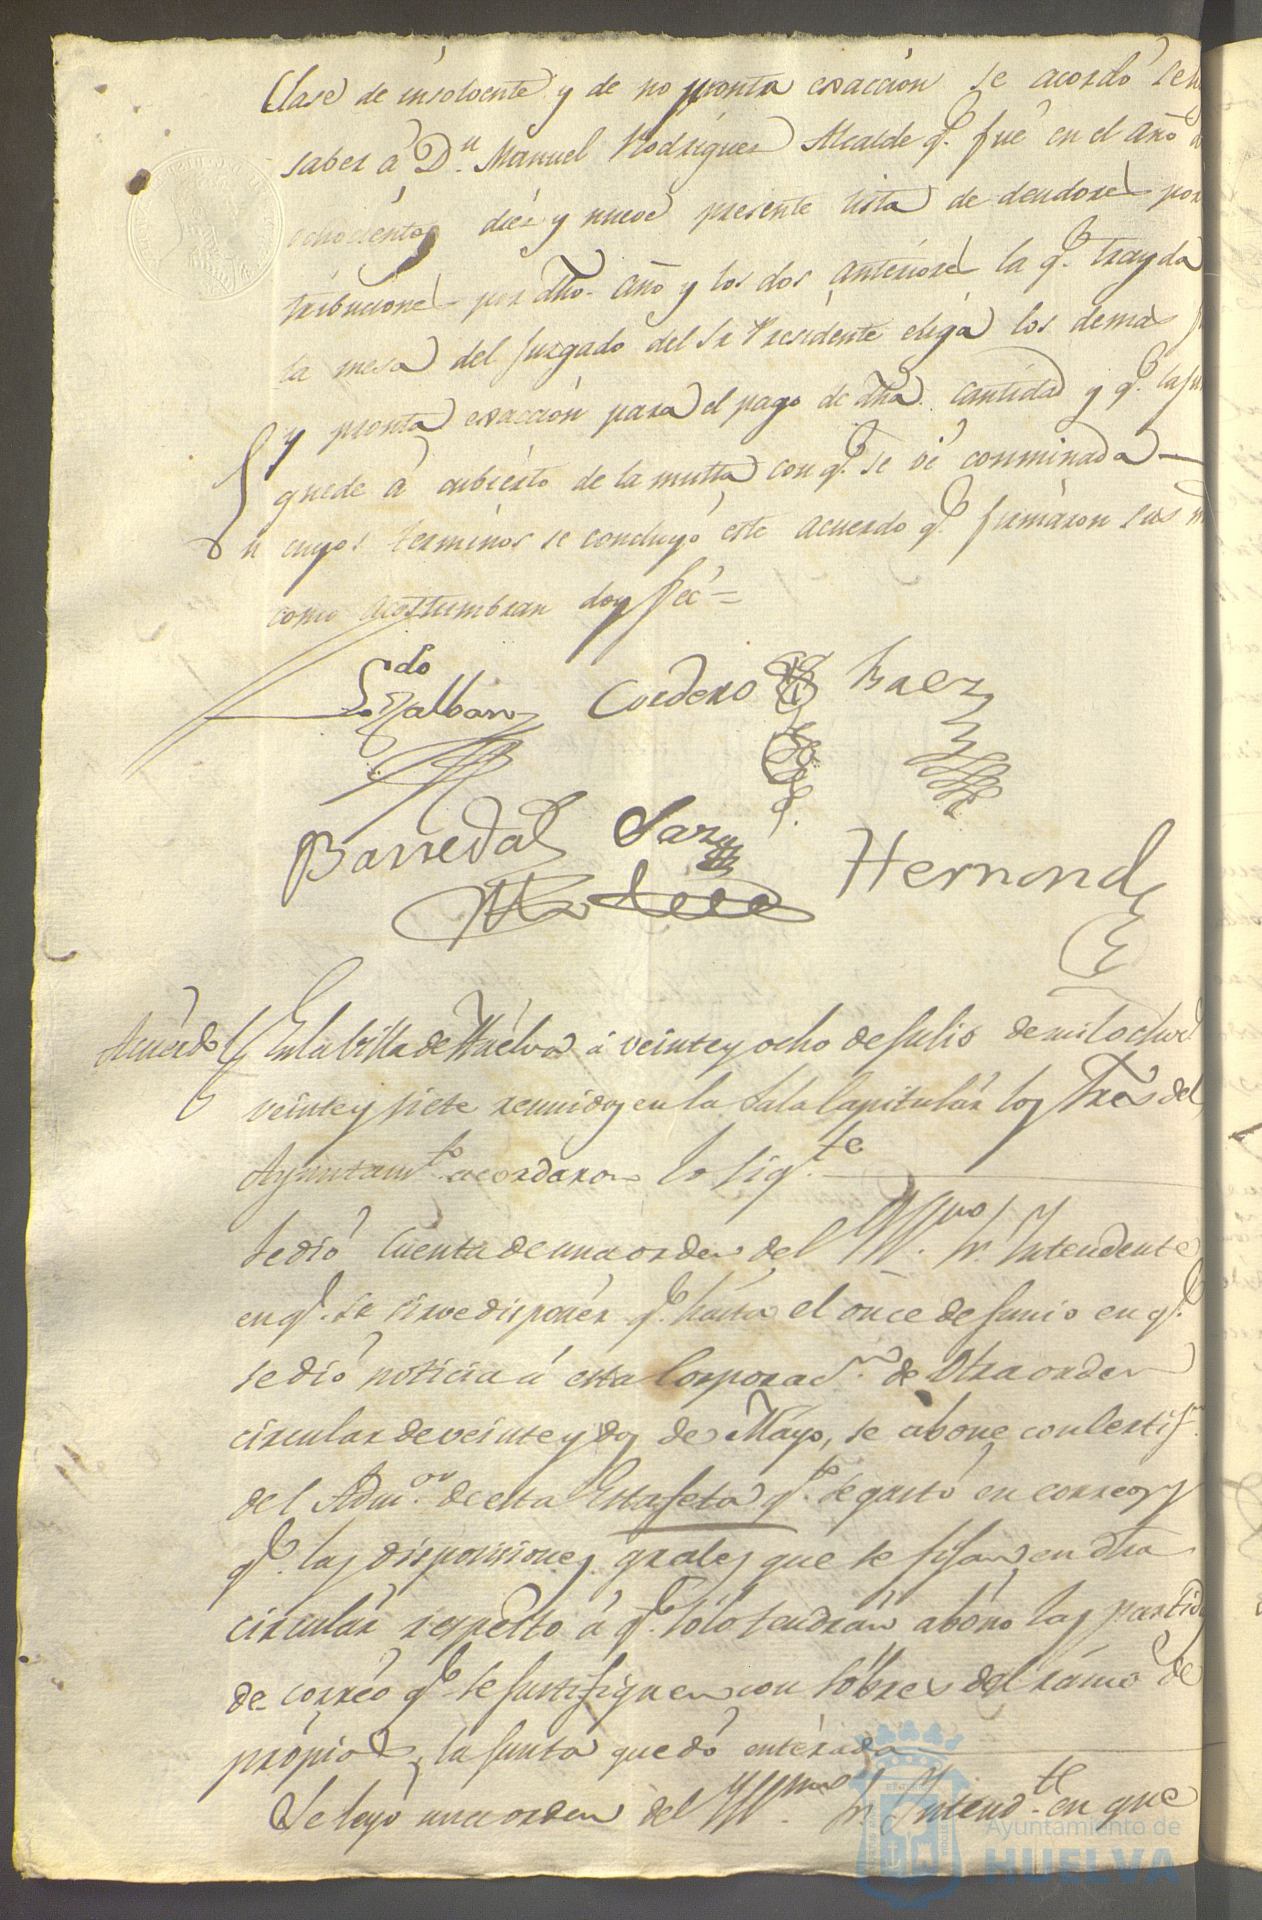 Clase de insolvente y de no pronta exaccion se acordó
saber á Dn. Manuel Rodriguez Alcalde q.e fué en el año
ochocientos diez y nueve presente lista de deudores por
tribuciones por dho. año y los dos anteriores la q.e trayda
la mesa del Juzgado del Sr Presidente elija los demas
y pronta exaccion para el pago de dha. cantidad y q.e
quede á cubierto de la multa con q.e se vé conminada
En cuyos terminos se concluyó este acuerdo q.e firmaron sus
como acostumbran doy feé =
Ldo Galban Cordero Baez
Barreda Saez Hernand
Acuerdo En la Villa de Huelva á veinte y ocho de Julio de mil ochos
veinte y siete reunidos en la Sala Capitulár los Sres del
Ayuntamto. acordaron lo sigte.
Se dió cuenta de una orden del Yllmo. Sr. Yntendente
en q.e se sirve disponér q.e hasta el once de Junio en q.e
se dió noticia á esta Corporacn. de otra orden
circular de veinte y dos de Mayo, se abone con Certif.
del Admor. de esta Estafeta q.e se gastó en correos y
q.e las disposiciones grales que se fijan en dha
circulár respecto á q.e solo tendrán abóno las partid
de corréo q.e se justifiquen con sobres del rámo de
própios, la Junta quedó enterada
Se leyó una orden del Yllmo. Sr. Yntendte. en que
Ayuntamiento de
HUELVA